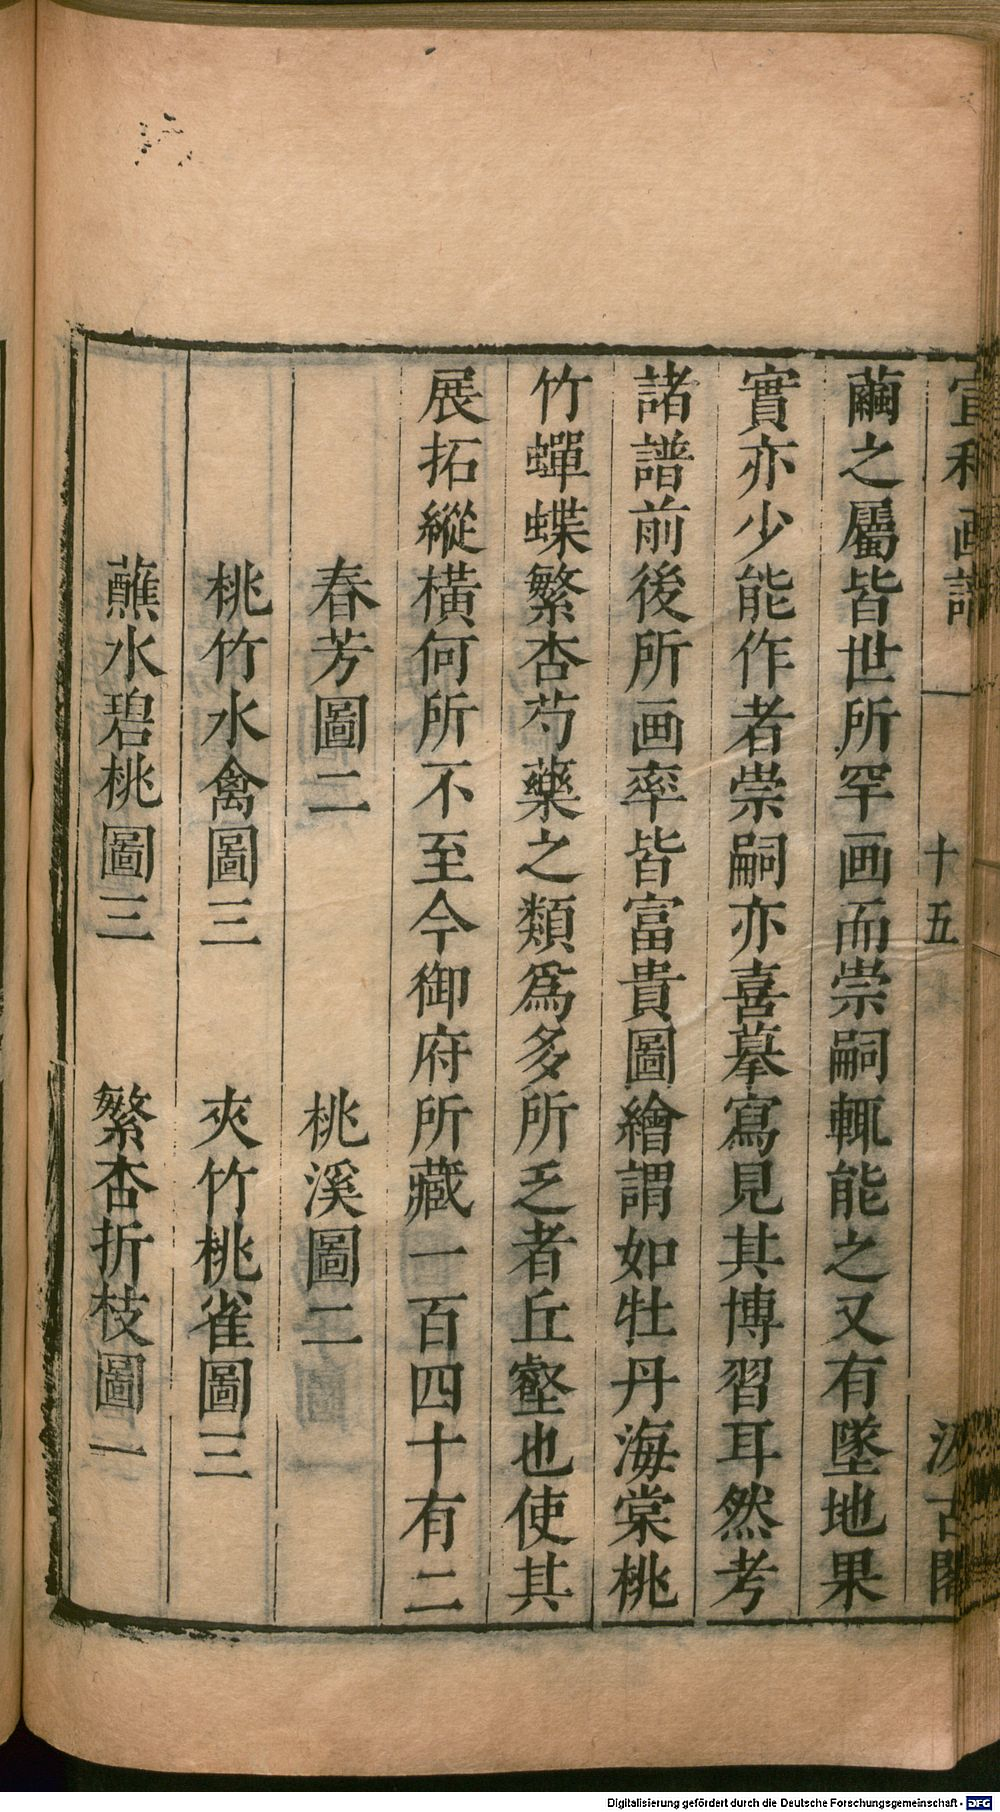 宣和画譜 十五 汲古閣
繭之屬皆世所罕画而崇嗣輒能之又有墜地果
實亦少能作者崇嗣亦喜摹寫見其博習耳然考
諸譜前後所画率皆富貴圖繪謂如牡丹海棠桃
竹蟬蝶繁杏芍藥之類爲多所乏者丘壑也使其
展拓縱橫何所不至今御府所藏一百四十有二
春芳圖二 桃溪圖二
桃竹水禽圖三 夾竹桃雀圖三
蘸水碧桃圖三 繁杏折枝圖一
Digitalisierung gefördert durch die Deutsche Forschungsgemeinschaft - DFG